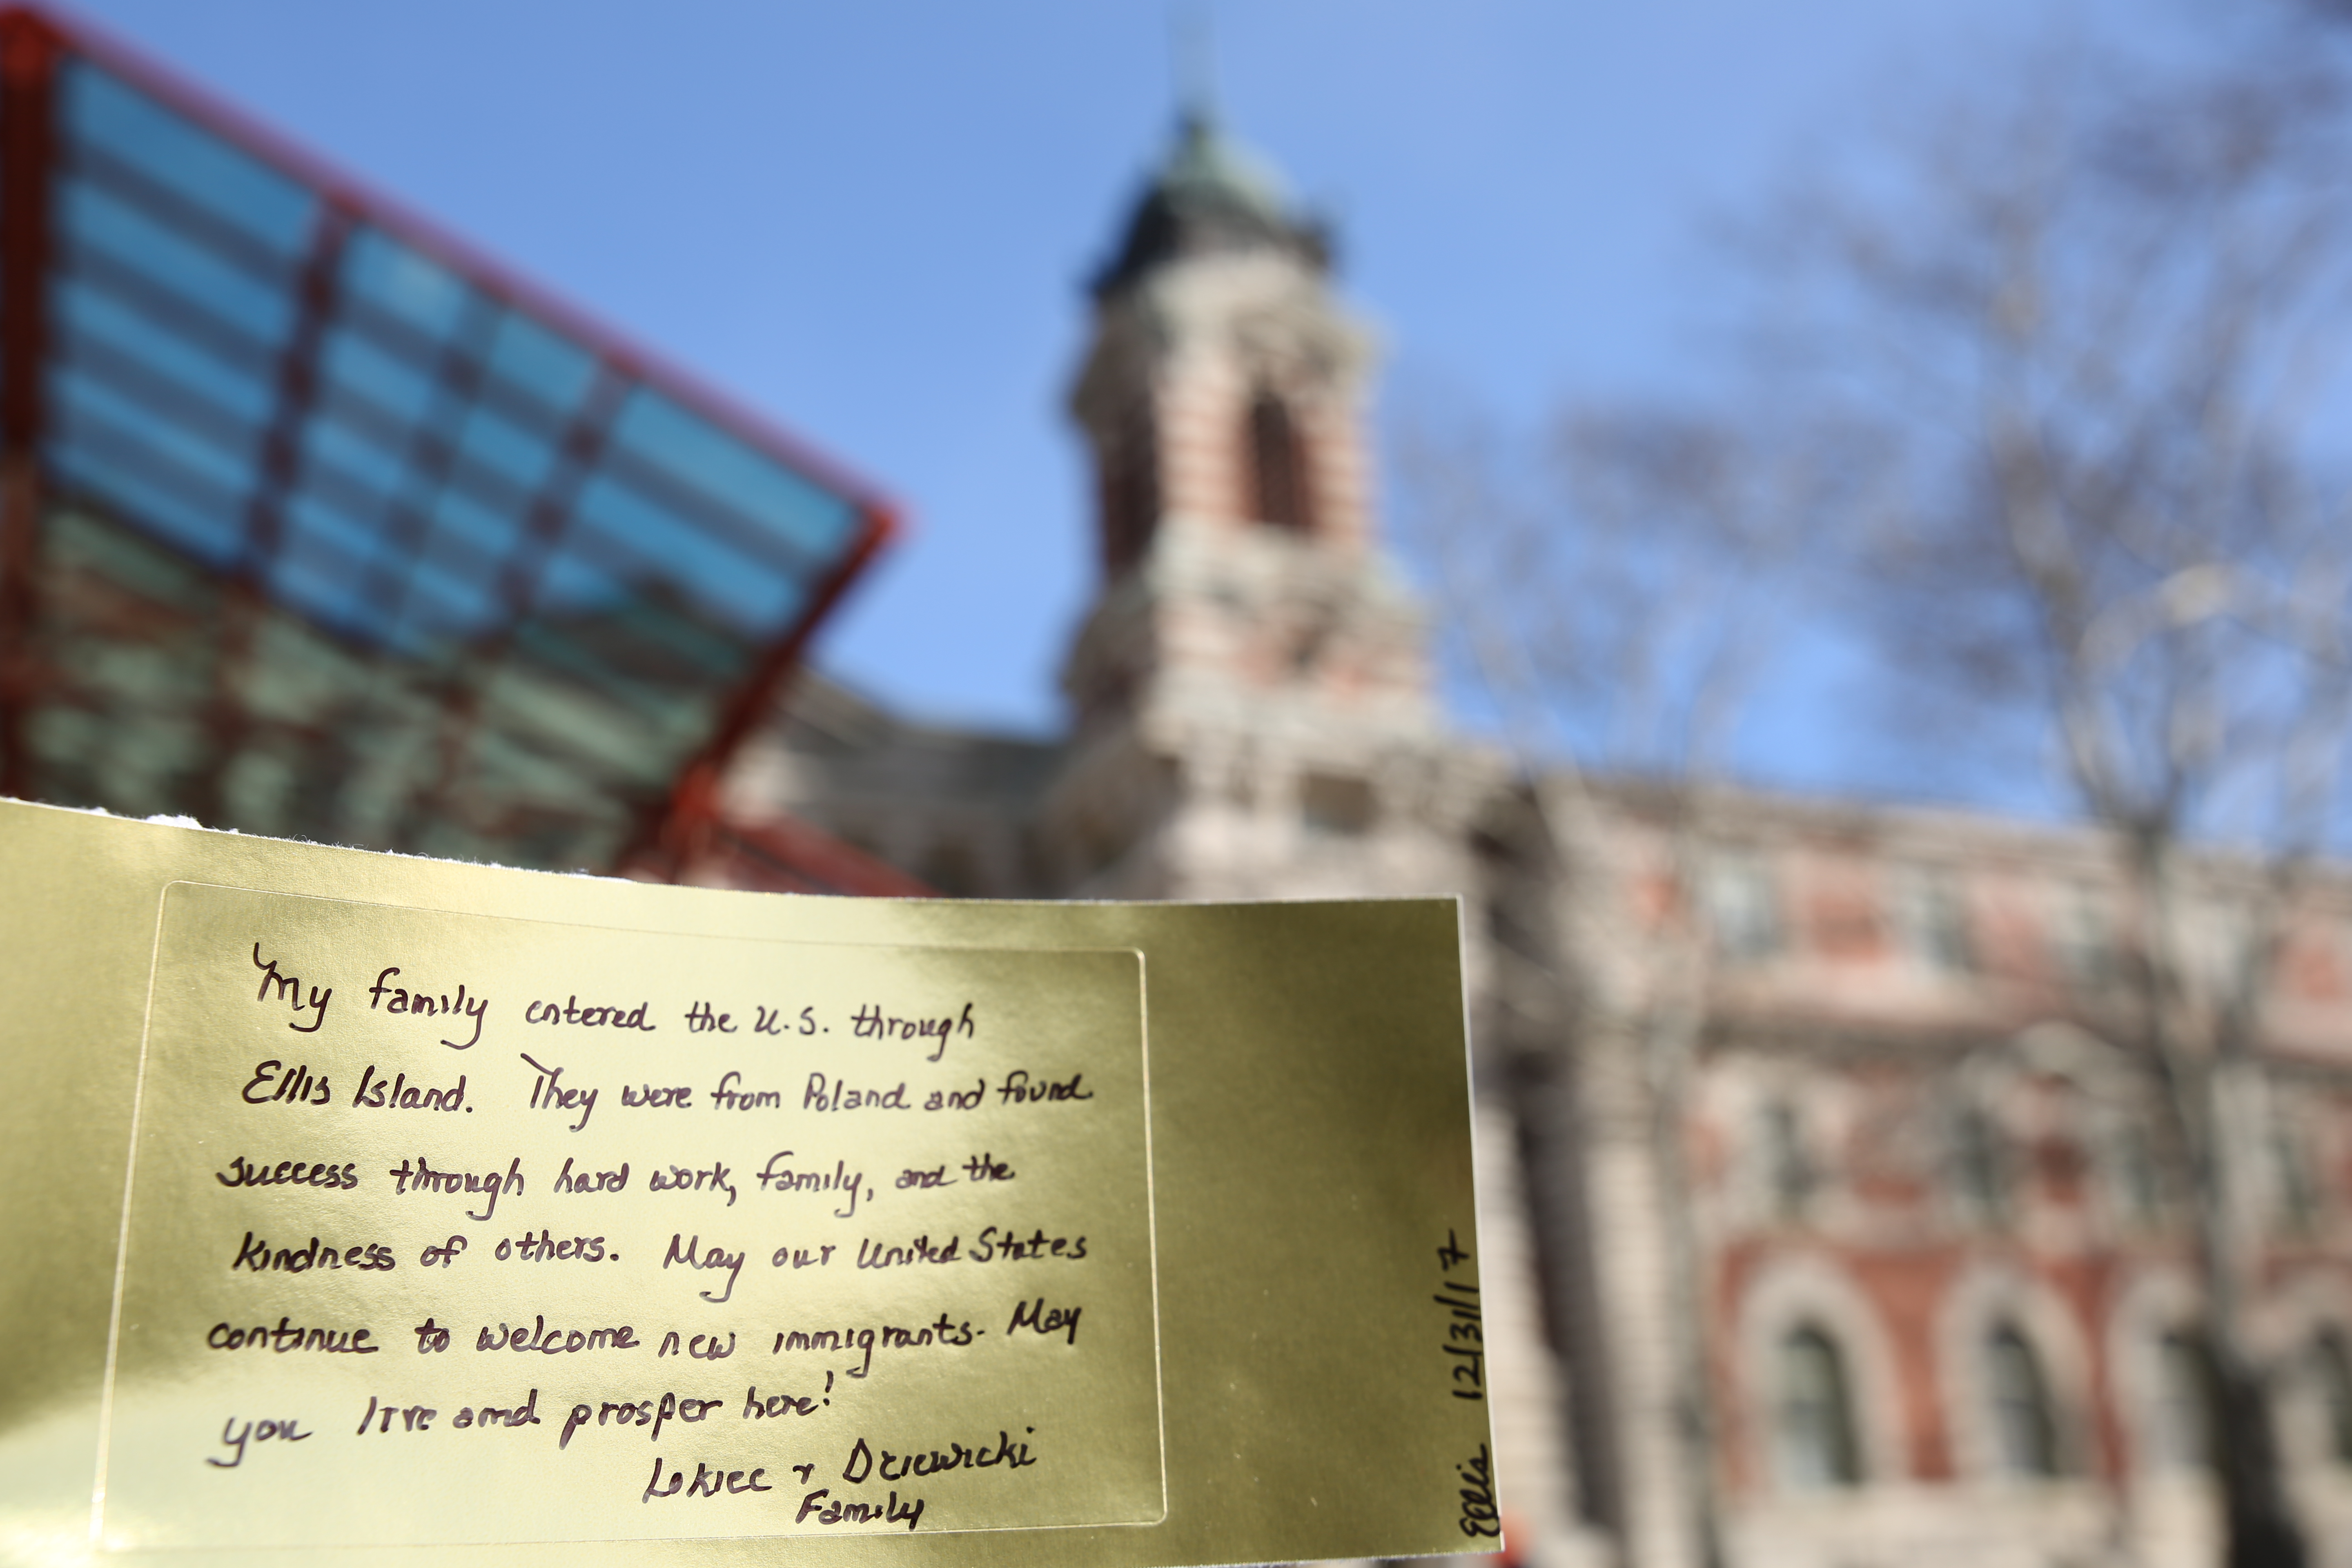 My family entered the U.S. through
Ellis Island. They were from Poland and found
success through hard work, family, and the
kindness of others. May our United States
continue to welcome new immigrants. May
you live and prosper here!
Lokiec & Dziewicki
Family
Ellis 12/31/17